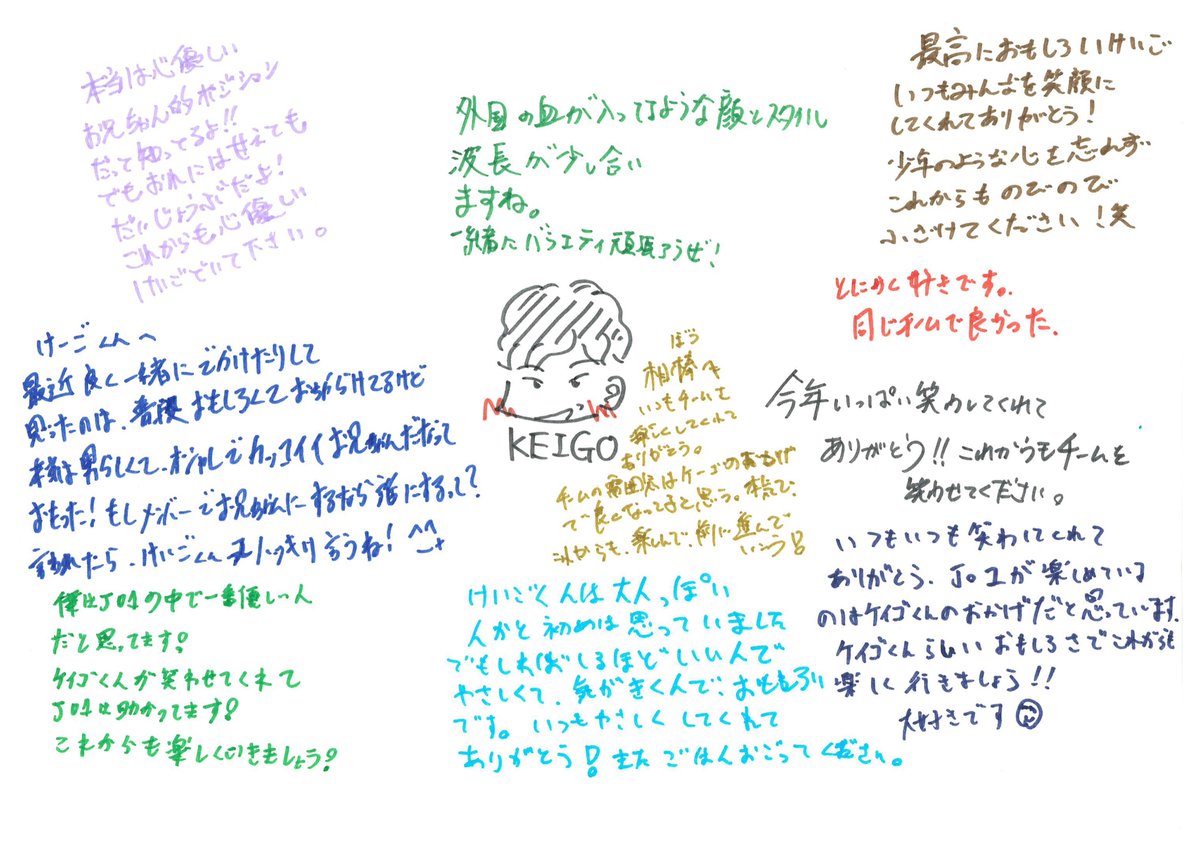 本当は心優しい
お兄ちゃん的ポジション
だって知ってるよ!!
でもおれには甘えても
だいじょうぶだよ!
これからも心優しい
けいごでいて下さい。
外国の血が入ってるような顔とスタイル
波長が少し合い
ますね。
一緒にバラエティ頑張ろうぜ!
最高におもしろいけいご
いつもみんなを笑顔に
してくれてありがとう!
少年のような心を忘れず
これからものびのび
ふざけてください!笑
とにかく好きです。
同じチームで良かった.
けーごくんへ
最近良く一緒にでかけたりして
思ったのは、普段おもしろくておちゃらけてるけど
本当は男らしくて、オシャレでカッコイイお兄ちゃんだなって
おもった!もしメンバーでお兄ちゃんにするなら誰にするって?
言われたら、けいごくん ハッキリ言うね!^^
KEIGO
ぼう
相棒へ
いつもチームを
楽しくしてくれて
ありがとう。
チームの雰囲気はケーゴのおかげ
で良くなってると思う。本気で、
これからも、楽しんで、前に進んで
いこう!
今年いっぱい笑わしてくれて
ありがとう!!これからもチームを
笑わせてください。
僕はJO1の中で一番優しい人
だと思ってます!
ケイゴくんが笑わせてくれて
JO1は助かってます!
これからも楽しくいきましょう!
けいごくんは大人っぽい
人かと初めは思っていました
でもしればしるほどいい人で
やさしくて、気がきくんで、おもしろい
です。いつもやさしくしてくれて
ありがとう!またごはんおごってください。
いつもいつも笑わしてくれて
ありがとう、JO1が楽しめている
のはケイゴくんのおかげだと思っています。
ケイゴくんらしいおもしろさでこれからも
楽しく行きましょう!!
大好きです